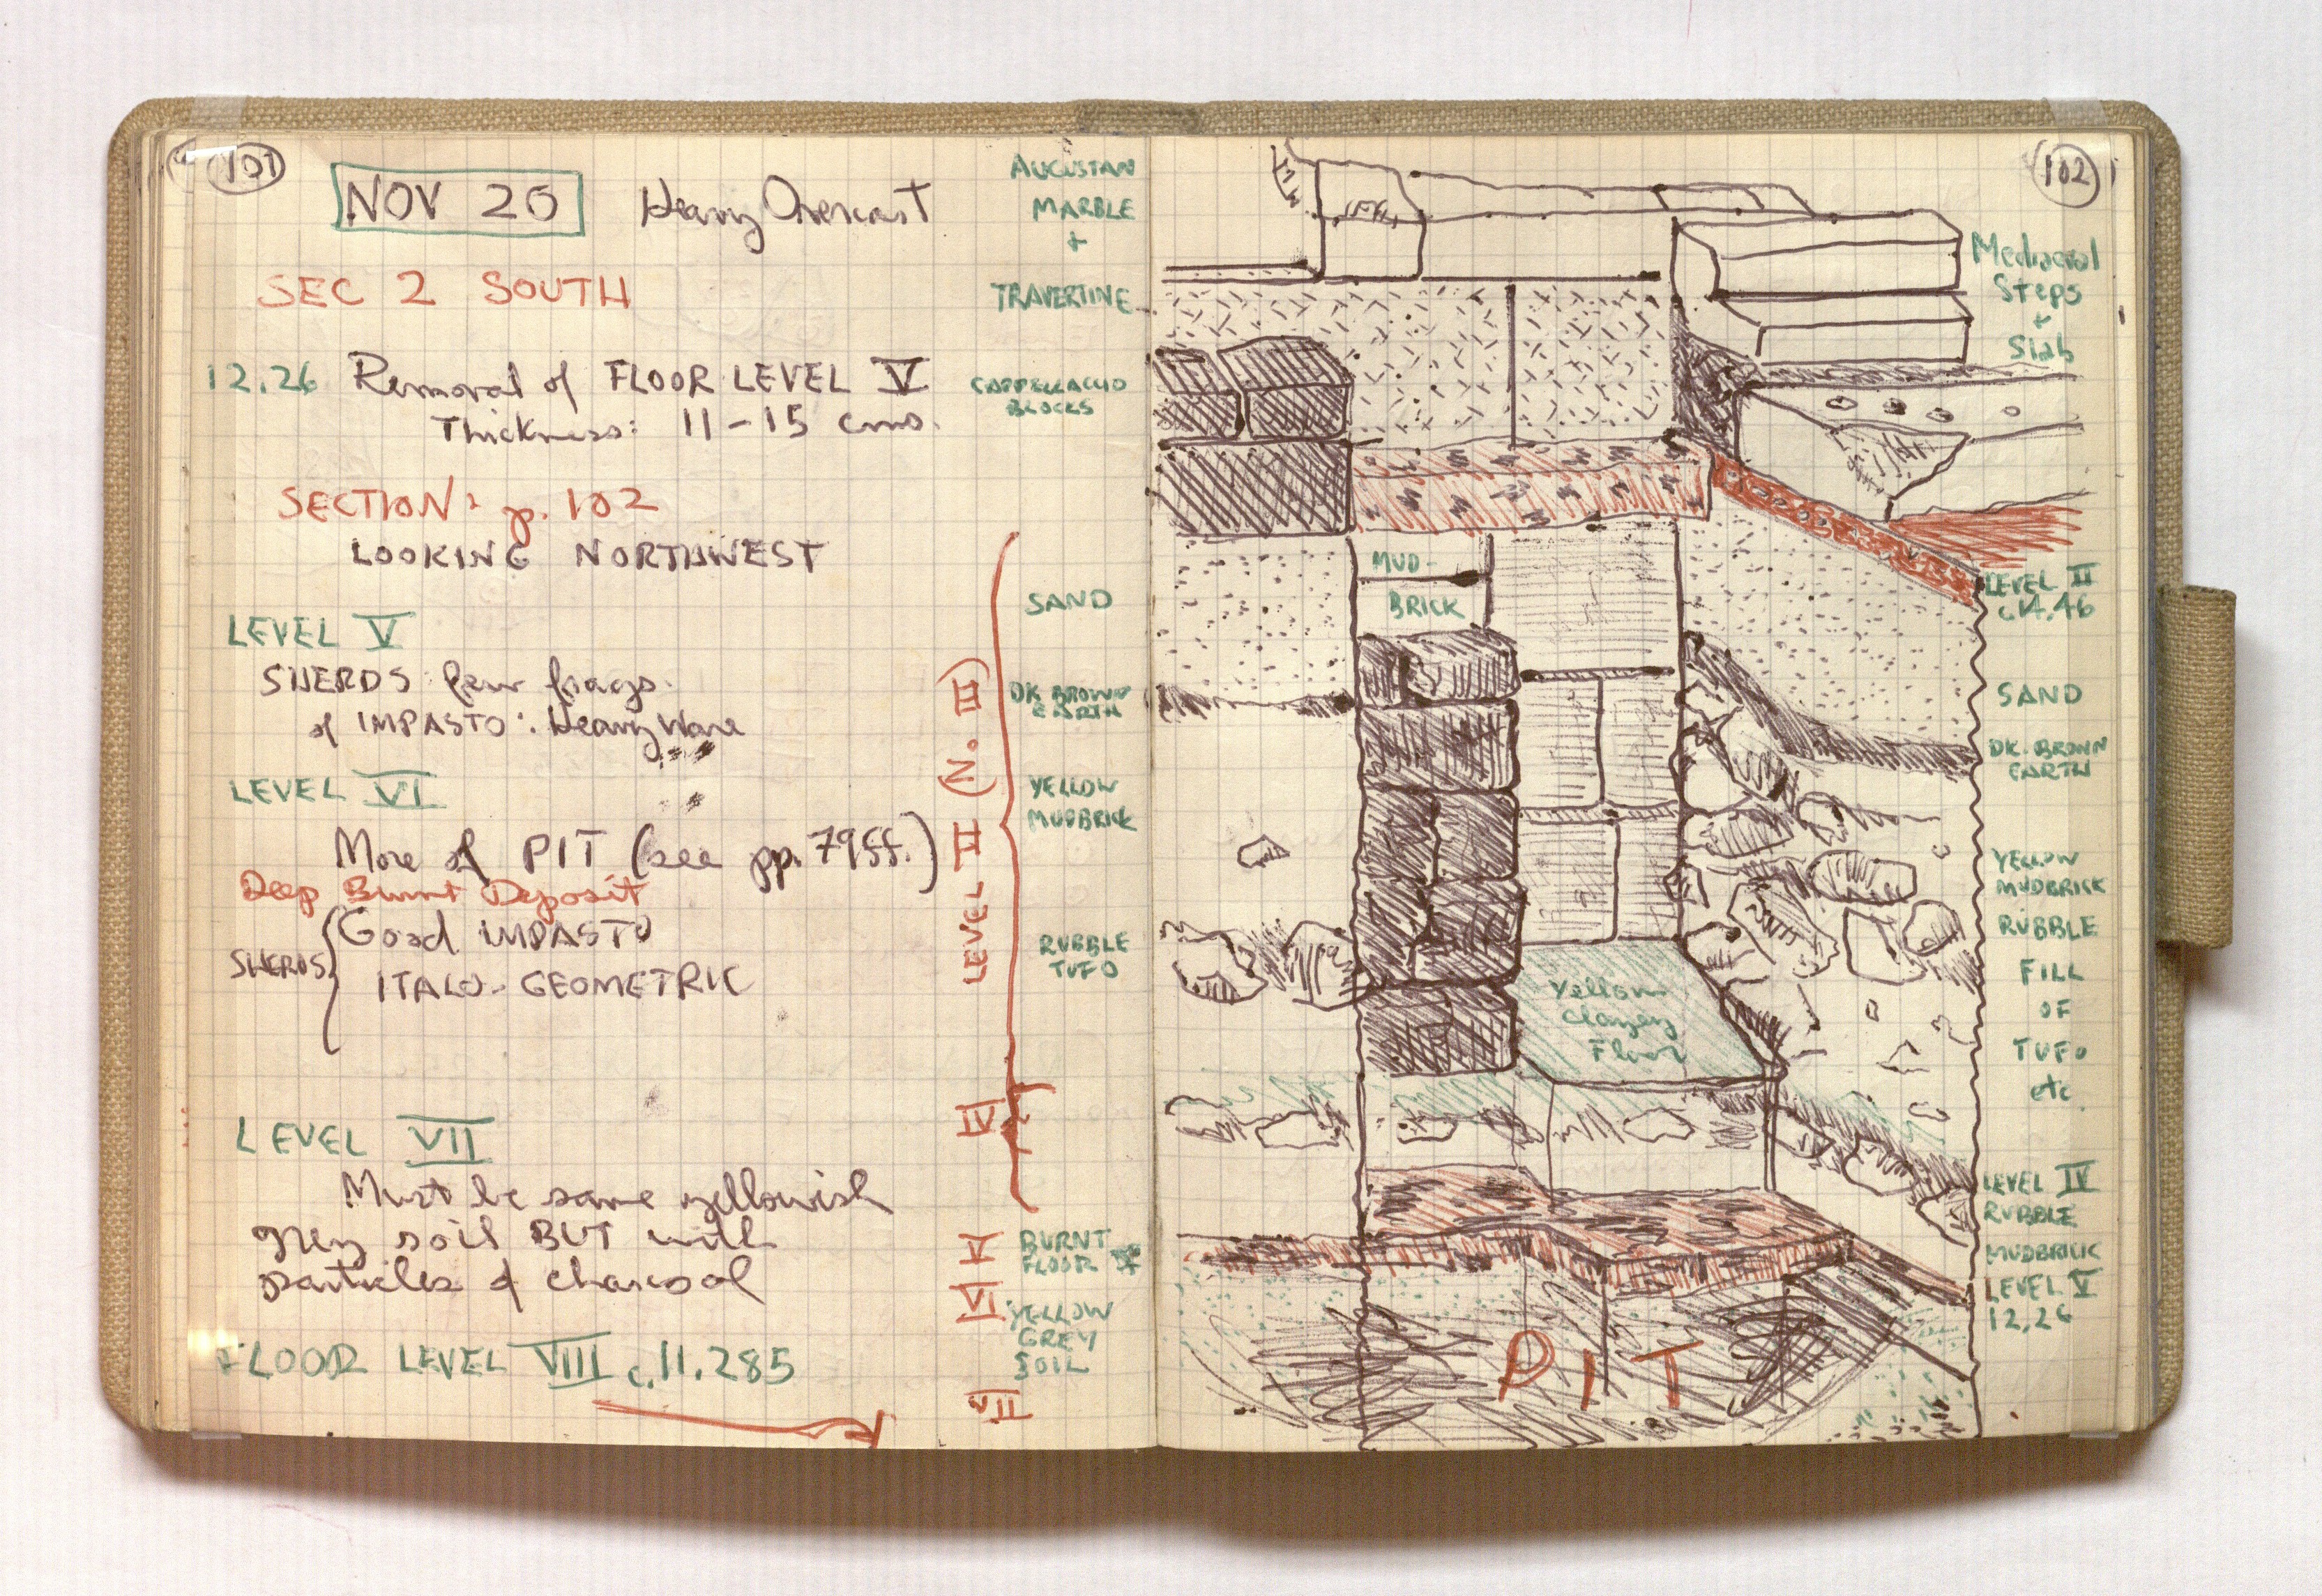 101
NOV 20 Heavy Overcast
SEC 2 SOUTH
12.26 Removal of FLOOR LEVEL V
Thickness: 11-15 cms.
SECTION: p. 102
LOOKING NORTHWEST
LEVEL V
SHERDS: few frags.
of IMPASTO: Heavy Ware
LEVEL VI
More of PIT (see pp. 79ff.)
Deep Burnt Deposit
SHERDS
Good IMPASTO
ITALO-GEOMETRIC
LEVEL VII
Must be same yellowish
grey soil BUT with
particles of charcoal
FLOOR LEVEL VIII c. 11.285
AUGUSTAN
MARBLE
+
TRAVERTINE
CAPPELLACCIO
BLOCKS
LEVEL II (N. III)
SAND
DK BROWN
EARTH
YELLOW
MUDBRICK
RUBBLE
TUFO
IV
V
BURNT
FLOOR
VI
YELLOW
GREY
SOIL
VII
102
Mediaeval
Steps
+
Slab
MUD-
BRICK
LEVEL II
c. 14.46
SAND
DK. BROWN
EARTH
YELLOW
MUDBRICK
RUBBLE
FILL
OF
TUFO
etc.
Yellow
Clayey
Floor
LEVEL IV
RUBBLE
MUDBRICK
LEVEL V
12.26
PIT